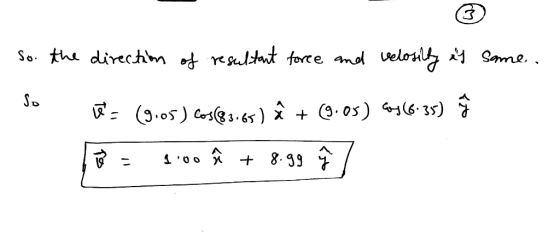 ③
So. the direction of resultant force and velosity is same.
So
v⃗ = (9.05) cos(83.65) x̂ + (9.05) cos(6.35) ŷ
v⃗ = 1.00 x̂ + 8.99 ŷ